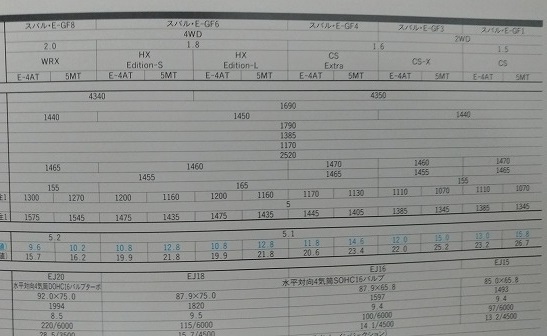 スバル・E-GF8 スバル・E-GF6 スバル・E-GF4 スバル・E-GF3 スバル・E-GF1
4WD 2WD
2.0 1.8 1.6 1.5
WRX HX Edition-S HX Edition-L CS Extra CS-X CS
E-4AT 5MT E-4AT 5MT E-4AT 5MT E-4AT 5MT E-4AT 5MT E-4AT 5MT
4340 4350
1690
1440 1450 1440
1790
1385
1170
2520
1465 1460 1470 1460 1470
1455 1465 1455 1465
155 165 155
注1 1300 1270 1200 1160 1200 1160 1170 1130 1110 1070 1110 1070
5
注1 1575 1545 1475 1435 1475 1435 1445 1405 1385 1345 1385 1345
5.2 5.1
値) 9.6 10.2 10.8 12.8 10.8 12.8 11.8 14.6 12.0 15.0 13.0 15.8
値) 15.7 16.2 19.9 21.8 19.9 21.8 20.6 23.4 22.0 25.2 23.2 26.7
EJ20 EJ18 EJ16 EJ15
水平対向4気筒DOHC16バルブターボ 水平対向4気筒SOHC16バルブ
92.0×75.0 87.9×75.0 87.9×65.8 85.0×65.8
1994 1820 1597 1493
8.5 9.5 9.4 9.4
220/6000 115/6000 100/6000 97/6000
28.5/3500 15.7/4500 14.1/4500 13.2/4500